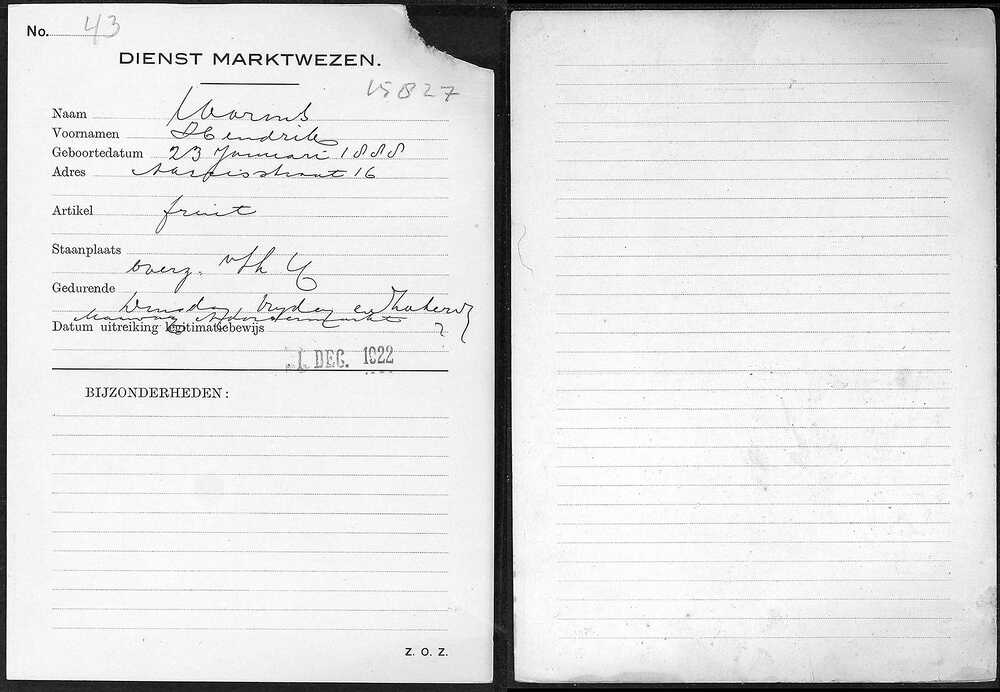 No. 43
DIENST MARKTWEZEN.
15827
Naam Warms
Voornamen Hendrik
Geboortedatum 23 Januari 1888
Adres straat 16
Artikel fruit
Staanplaats
overz. v/h
Gedurende
Dinsdag Vrijdag en Zaterd
Datum uitreiking legitimatiebewijs
1 DEC. 1922
BIJZONDERHEDEN:
Z. O. Z.